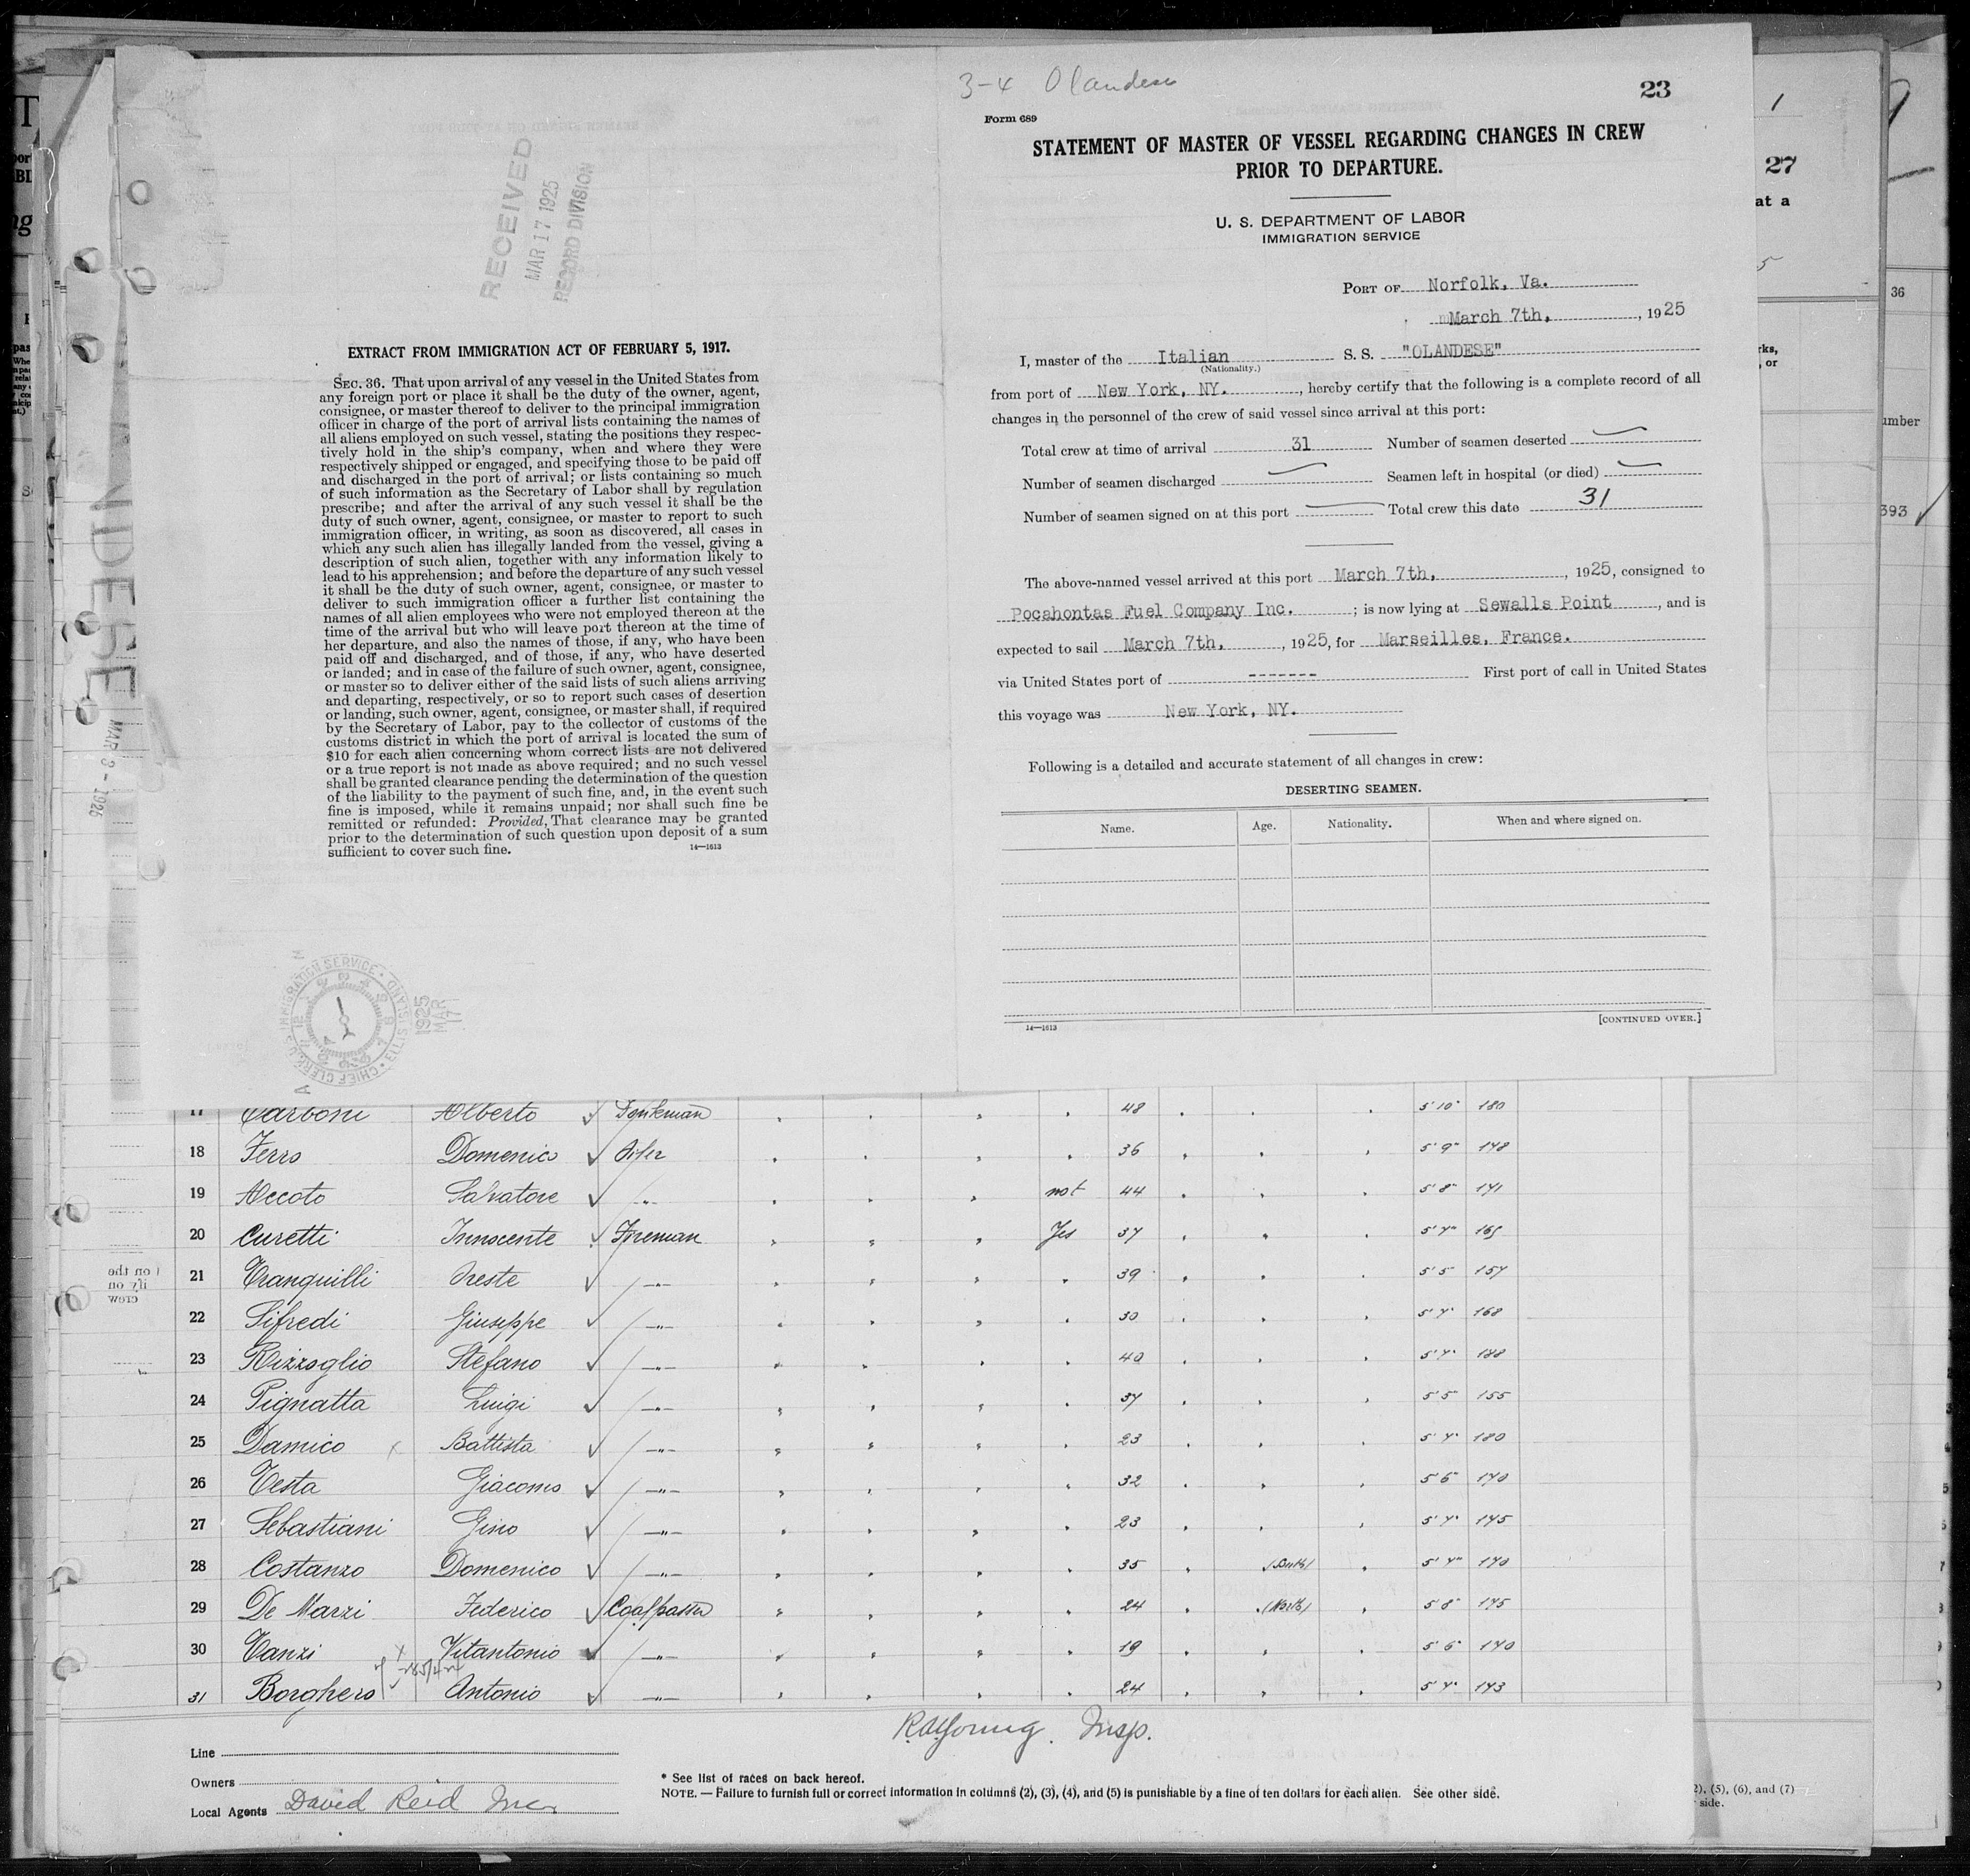 3-4 Olandese
23
Form 689
STATEMENT OF MASTER OF VESSEL REGARDING CHANGES IN CREW
PRIOR TO DEPARTURE.
U. S. DEPARTMENT OF LABOR
IMMIGRATION SERVICE
PORT OF Norfolk, Va.
March 7th, , 1925
I, master of the Italian S. S. "OLANDESE"
(Nationality.)
from port of New York, NY. , hereby certify that the following is a complete record of all
changes in the personnel of the crew of said vessel since arrival at this port:
Total crew at time of arrival 31 Number of seamen deserted
Number of seamen discharged Seamen left in hospital (or died)
Number of seamen signed on at this port Total crew this date 31
The above-named vessel arrived at this port March 7th, , 1925, consigned to
Pocahontas Fuel Company Inc. ; is now lying at Sewalls Point , and is
expected to sail March 7th, , 1925, for Marseilles, France.
via United States port of ------- First port of call in United States
this voyage was New York, NY.
Following is a detailed and accurate statement of all changes in crew:
DESERTING SEAMEN.
Name. Age. Nationality. When and where signed on.
14—1613
[CONTINUED OVER.]
RECEIVED
MAR 17 1925
RECORD DIVISION
EXTRACT FROM IMMIGRATION ACT OF FEBRUARY 5, 1917.
SEC. 36. That upon arrival of any vessel in the United States from
any foreign port or place it shall be the duty of the owner, agent,
consignee, or master thereof to deliver to the principal immigration
officer in charge of the port of arrival lists containing the names of
all aliens employed on such vessel, stating the positions they respec-
tively hold in the ship's company, when and where they were
respectively shipped or engaged, and specifying those to be paid off
and discharged in the port of arrival; or lists containing so much
of such information as the Secretary of Labor shall by regulation
prescribe; and after the arrival of any such vessel it shall be the
duty of such owner, agent, consignee, or master to report to such
immigration officer, in writing, as soon as discovered, all cases in
which any such alien has illegally landed from the vessel, giving a
description of such alien, together with any information likely to
lead to his apprehension; and before the departure of any such vessel
it shall be the duty of such owner, agent, consignee, or master to
deliver to such immigration officer a further list containing the
names of all alien employees who were not employed thereon at the
time of the arrival but who will leave port thereon at the time of
her departure, and also the names of those, if any, who have been
paid off and discharged, and of those, if any, who have deserted
or landed; and in case of the failure of such owner, agent, consignee,
or master so to deliver either of the said lists of such aliens arriving
and departing, respectively, or so to report such cases of desertion
or landing, such owner, agent, consignee, or master shall, if required
by the Secretary of Labor, pay to the collector of customs of the
customs district in which the port of arrival is located the sum of
$10 for each alien concerning whom correct lists are not delivered
or a true report is not made as above required; and no such vessel
shall be granted clearance pending the determination of the question
of the liability to the payment of such fine, and, in the event such
fine is imposed, while it remains unpaid; nor shall such fine be
remitted or refunded: Provided, That clearance may be granted
prior to the determination of such question upon deposit of a sum
sufficient to cover such fine.
14—1613
CHIEF CLERK, U.S. IMMIGRATION SERVICE • ELLIS ISLAND
1925
MAR
17
NDESE
MAR 3 - 1925
27
at a
36
393
17 Carboni Alberto Donkeman 48 5'10" 180
18 Ferro Domenico Oiler 36 5'9" 148
19 Accoto Salvatore " not 44 5'8" 141
20 Curetti Innocente Fireman Yes 37 5'7" 165
21 Tranquilli Oreste " 39 5'5" 157
22 Sifredi Giuseppe " 30 5'7" 168
23 Rizzoglio Stefano " 40 5'7" 188
24 Pignatta Luigi " 37 5'5" 155
25 Damico Battista " 23 5'7" 180
26 Testa Giacomo " 32 5'6" 170
27 Sebastiani Gino " 23 5'7" 175
28 Costanzo Domenico " 35 (South) 5'7" 170
29 De Marzi Federico Coalpasser 24 (North) 5'8" 175
30 Tanzi Vitantonio " 19 5'6" 140
31 Borghero Antonio " 24 5'7" 173
R A Young. Insp.
Line
Owners
Local Agents David Reid Inc.
* See list of races on back hereof.
NOTE. — Failure to furnish full or correct information in columns (2), (3), (4), and (5) is punishable by a fine of ten dollars for each alien. See other side.
(5), (6), and (7)
side.